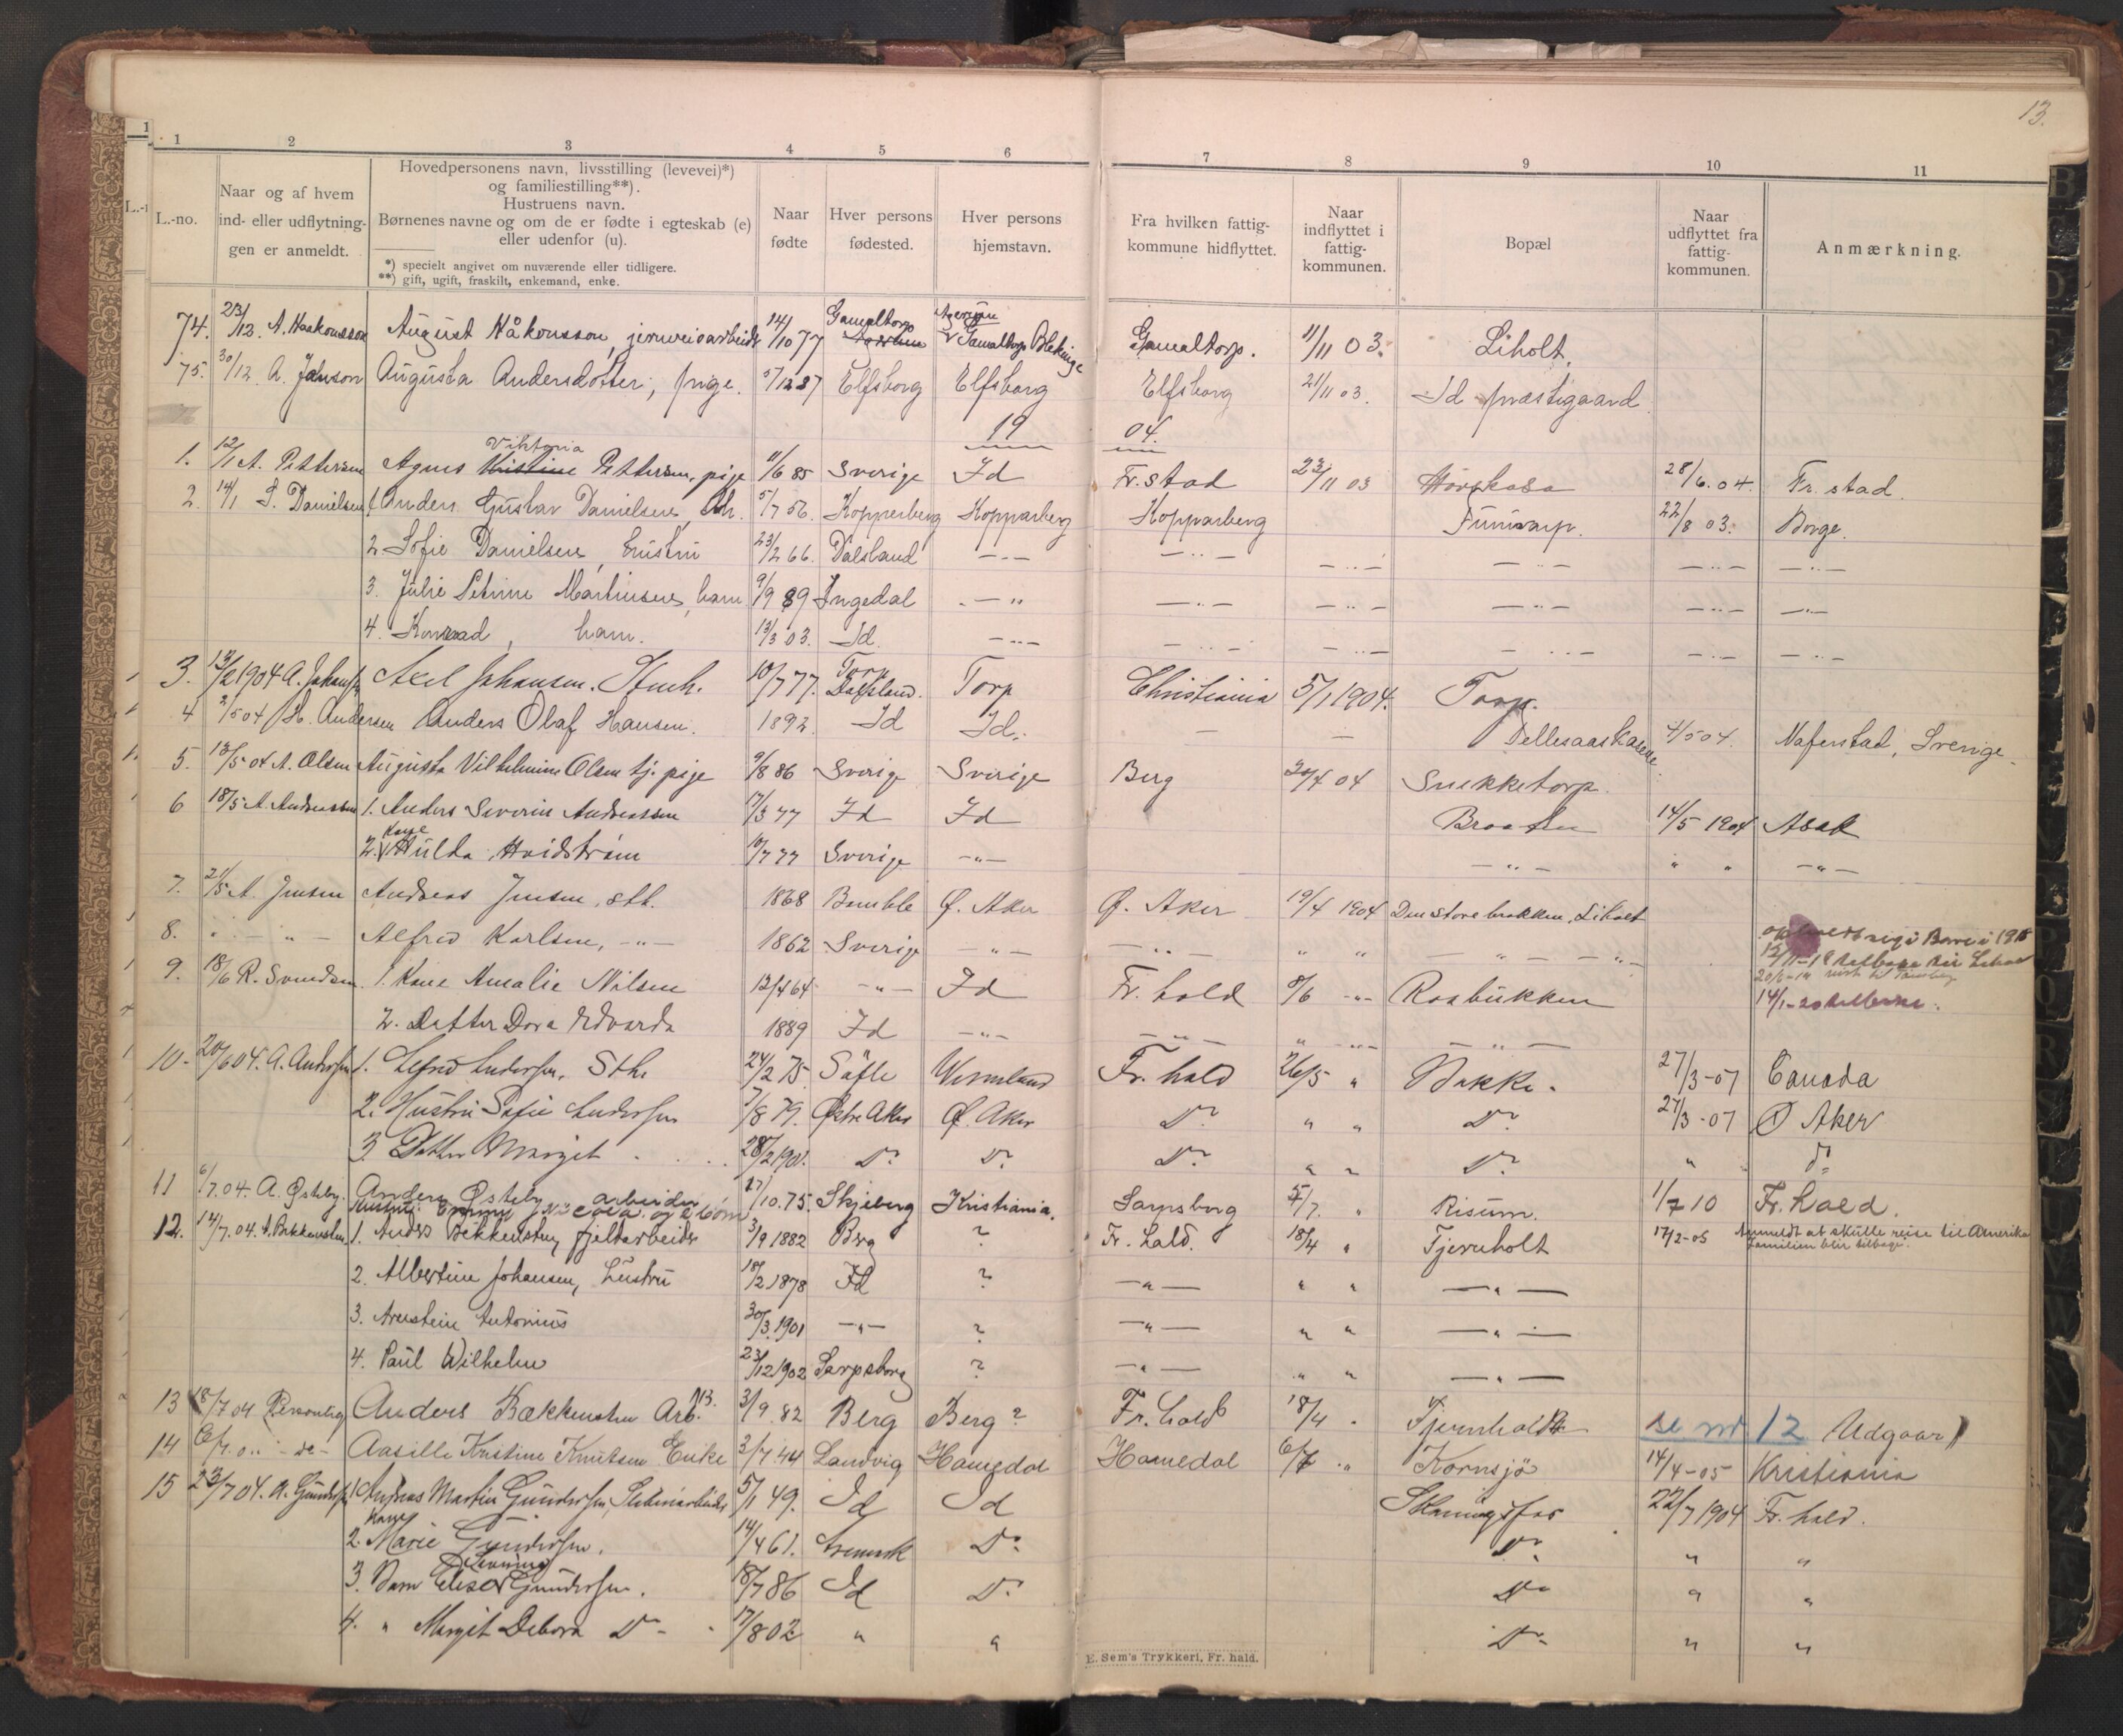 13.
1 2 3 4 5 6 7 8 9 10 11
L.-no.
Naar og af hvem
ind- eller udflytning-
gen er anmeldt.
Hovedpersonens navn, livsstilling (levevei)*)
og familiestilling**).
Hustruens navn.
Børnenes navne og om de er fødte i egteskab (e)
eller udenfor (u).
*) specielt angivet om nuværende eller tidligere.
**) gift, ugift, fraskilt, enkemand, enke.
Naar
fødte
Hver persons
fødested.
Hver persons
hjemstavn.
Fra hvilken fattig-
kommune hidflyttet.
Naar
indflyttet i
fattig-
kommunen.
Bopæl
Naar
udflyttet fra
fattig-
kommunen.
Anmærkning.
74. 23/12. A. Haakonsson August Håkonsson, jernveisarbeider 14/10 77 Gamaltorp Gamaltorp Blekinge Gamaltorp. 11/11 03. Liholt.
75. 30/12. A. Janson Augusta Andersdotter, pige. 5/12 87 Elfsborg Elfsborg Elfsborg 21/11 03. Id præstigaard
19 04.
1. 12/1 A. Pettersen Agnes Viktoria Kristine Pettersen, pige 11/6 85 Sverige Id Fr.stad 23/11 03 28/6.04. Fr. stad.
2. 14/1 S. Danielsen 1. Anders Gustav Danielsen, Sth. 5/7 56. Kopperberg Kopparberg Kopparberg 22/8 03. Borge.
2. Sofie Danielsen, hustru 23/2 66. Dalsland — " — — " — — " — — " — — " — — " —
3. Julie Petrine Martinsen, barn 9/9 89 Ingedal — " — " — — " — — " — — " — — " —
4. Konraad, barn. 13/3 03. Id. — " — — " — — " — — " — — " — — " —
3. 13/2 1904 A. Johansen Axel Johansen. Stenh. 10/7 77. Torp Dalsland. Torp Christiania 5/1 1904. Torp.
4 2/5 04 H. Andersen Anders Olaf Hansen. 1892. Id Id. — — 4/5 04. Naferstad, Sverige.
5. 13/5 04 A. Olsen Augusta Vilhelmine Olsen tj. pige 9/8 86 Sverige Sverige Berg 20/4 04 Snekketorp.
6 18/5 A. Andreassen 1. Anders Severin Andreassen 17/3 77 Id Id Braaten 14/5 1904 Asak
2. Kone Hulda Hvidstrøm 10/7 77 Sverige — " — — " — " " — " —
7. 21/5 A. Jensen Andreas Jensen, sth. 1868 Bamble Ø. Aker Ø. Aker 19/4 1904 Den store brakken, Liholt
8. " — " — Alfred Karlsen, — " — 1862 Sverige — " — — " — " " — " — " —
9. 18/6 R. Svendsen 1. Kone Amalie Nilsen 12/4 64 — " — Id Fr. hald 8/6 — " — Raabukken
14/1-20 tilbake.
2. Datter Dora Edvarda 1889 Id — " — — " — " — " — — " —
10. 20/6 04. A. Andersen 1. Alfred Andersen. Sth. 24/2 75 Säfle Vermland Fr. hald 26/5 " Bakke. 27/3-07 Canada
2. Hustru Sofie Andersen 5/8 79. Østre Aker Ø. Aker Do " " Do 27/3-07 Ø Aker
3. Datter Margit 28/2 1901. Do Do Do " " Do " " do
11 6/7.04. A. Østeby. Anders Østeby arbeider 27/10.75. Skjeberg Kristiania. Sarpsborg 5/7. " Risum. 1/7 10 Fr. hald.
12. 14/7.04. A. Bekkensten 1. Anders Bekkensten, fjeldarbeider 3/9 1882 Berg ? Fr. hald. 18/4 " Tjernholt 17/2-05 Anmeldt at skulle reise til Amerika
familien blir tilbage.
2. Albertine Johansen, hustru 18/2 1878 Id ? — " — " " — " —
3. Arnstein Antonius 30/3.1901 — " — ? — " — " " — " —
4. Paul Wilhelm 23/12 1902 Sarpsborg ? — " — " " — " —
13 18/7 04 Personlig Anders Bækkensten Arb. NB. 3/9 82 Berg Berg ? Fr. hald 18/4 " Tjernholdt se nr 12 Udgaar
14 6/7.0.. - do - Aasille Kristine Knutsen Enke 3/7.44 Landvig Homedal Homedal 6/7 " Kornsjø 14/4-05 Kristiania
15 23/7 04. A. Gundersen 1. Andreas Martin Gundersen, Sliberiarbeider 5/1 49. Id Id Skaningsfos 22/7 1904 Fr. hald.
2. Kone Marie Gundersen. 14/4 61. Svensk Do Do " "
3. Barn Elise Gundersen. 18/7 86 Id Do Do " "
4. " Margit Debora Do 17/8 02 " " Do " "
E. Sem's Trykkeri, Fr. hald.